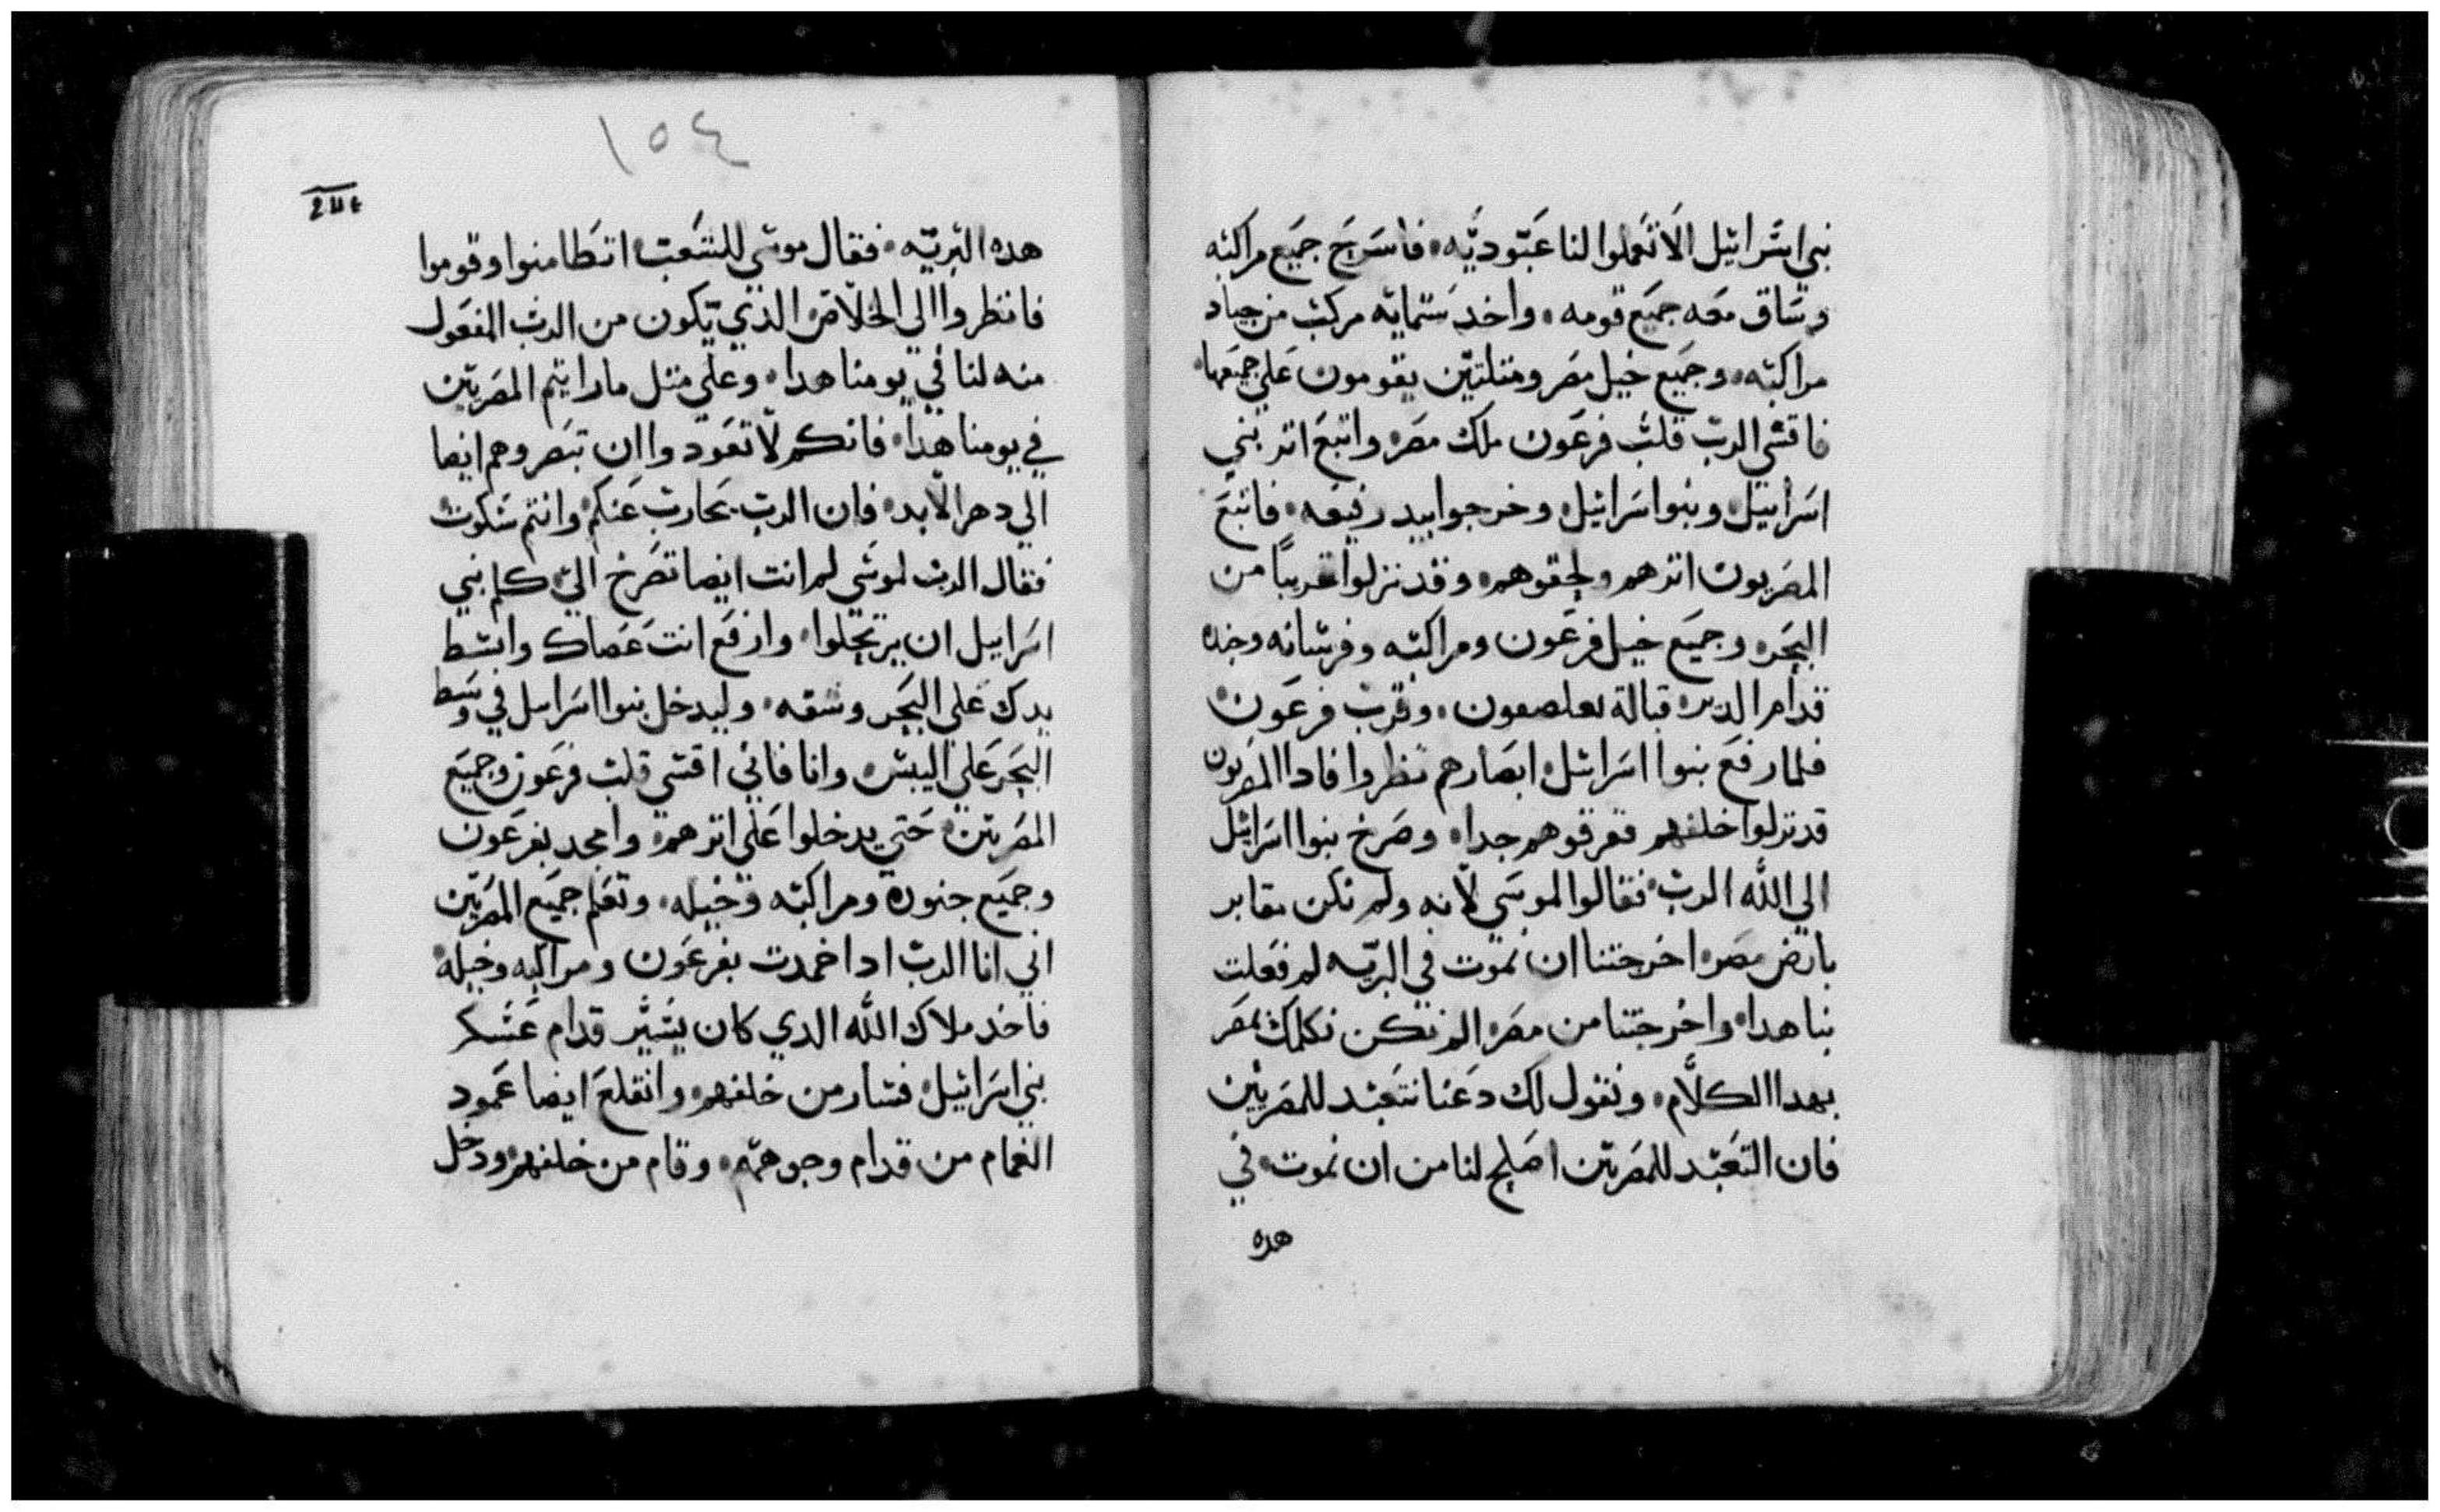 بني اسرائيل الا تعملوا لنا عبوديه فاسرج جميع مراكبه
وساق معه جميع قومه واخد ستمايه مركب من جياد
مراكبه وجميع خيل مصر ومثلثين يقومون علي جميعها
فاقسي الرب قلب فرعون ملك مصر واتبع اثر بني
اسراييل وبنوا اسرائيل وخرجوا بيد رفيعه فاتبع
المصريون اثرهم ولحقوهم وقد نزلوا قريبا من
البحر وجميع خيل فرعون ومراكبه وفرسانه وجنده
قدام الدير قبالة بعلصفون وقرب فرعون
فلما رفع بنوا اسرائيل ابصارهم نظروا فادا المصريون
قد نزلوا خلفهم ففرقوهم جدا وصرخ بنوا اسرائيل
الي الله الرب فقالوا لموسي لانه ولم تكن مقابر
بارض مصر اخرجتنا ان نموت في البريه لم فعلت
بنا هدا واخرجتنا من مصر الم نكن نكلمك بمصر
بهدا الكلام ونقول لك دعنا نتعبد للمصريين
فان التعبد للمصريين اصلح لنا من ان نموت في
هده
١٥٤
هده البريه فقال موسي للشعب اتطامنوا وقوموا
فانظروا الي الخلاص الذي يكون من الرب المفعول
منه لنا في يومنا هدا وعلي مثل ما رايتم المصريين
في يومنا هدا فانكم لا تعودوا ان تبصروهم ايضا
الي دهر الابد فان الرب يحارب عنكم وانتم سكوت
فقال الرب لموسي لم انت ايضا تصرخ الي كلم بني
اسراييل ان يرتحلوا وارفع انت عصاك وابسط
يدك علي البحر وشقه وليدخل بنوا اسراييل في وسط
البحر علي اليبس وانا فاني اقسي قلب فرعون وجميع
المصريين حتي يدخلوا علي اثرهم وامجد بفرعون
وجميع جنوده ومراكبه وخيله وتعلم جميع المصريين
اني انا الرب ادا خمدت بفرعون ومراكبه وخيله
فاخد ملاك الله الدي كان يسير قدام عسكر
بني اسرائيل فسار من خلفهم وانقلع ايضا عمود
الغمام من قدام وجوههم وقام من خلفهم ودخل